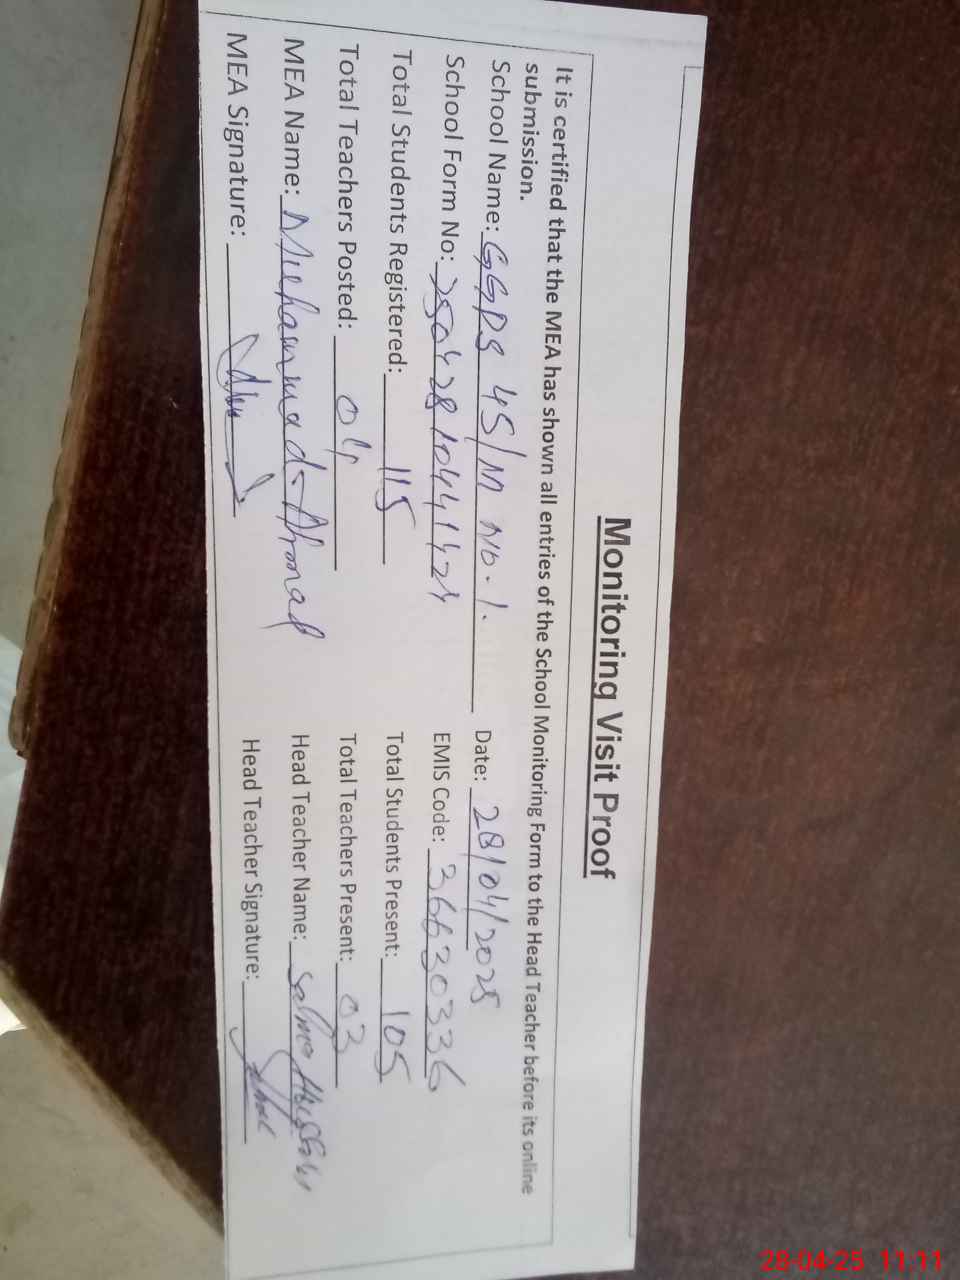 Monitoring Visit Proof
It is certified that the MEA has shown all entries of the School Monitoring Form to the Head Teacher before its online
submission.
School Name: GGPS 45/M No. 1. Date: 28/04/2025
School Form No: EMIS Code: 36630336
Total Students Registered: 115 Total Students Present: 105
Total Teachers Posted: 04 Total Teachers Present: 03
MEA Name: Muhammad Ahmad Head Teacher Name: Salma
MEA Signature: Head Teacher Signature:
28-04-25 11:11